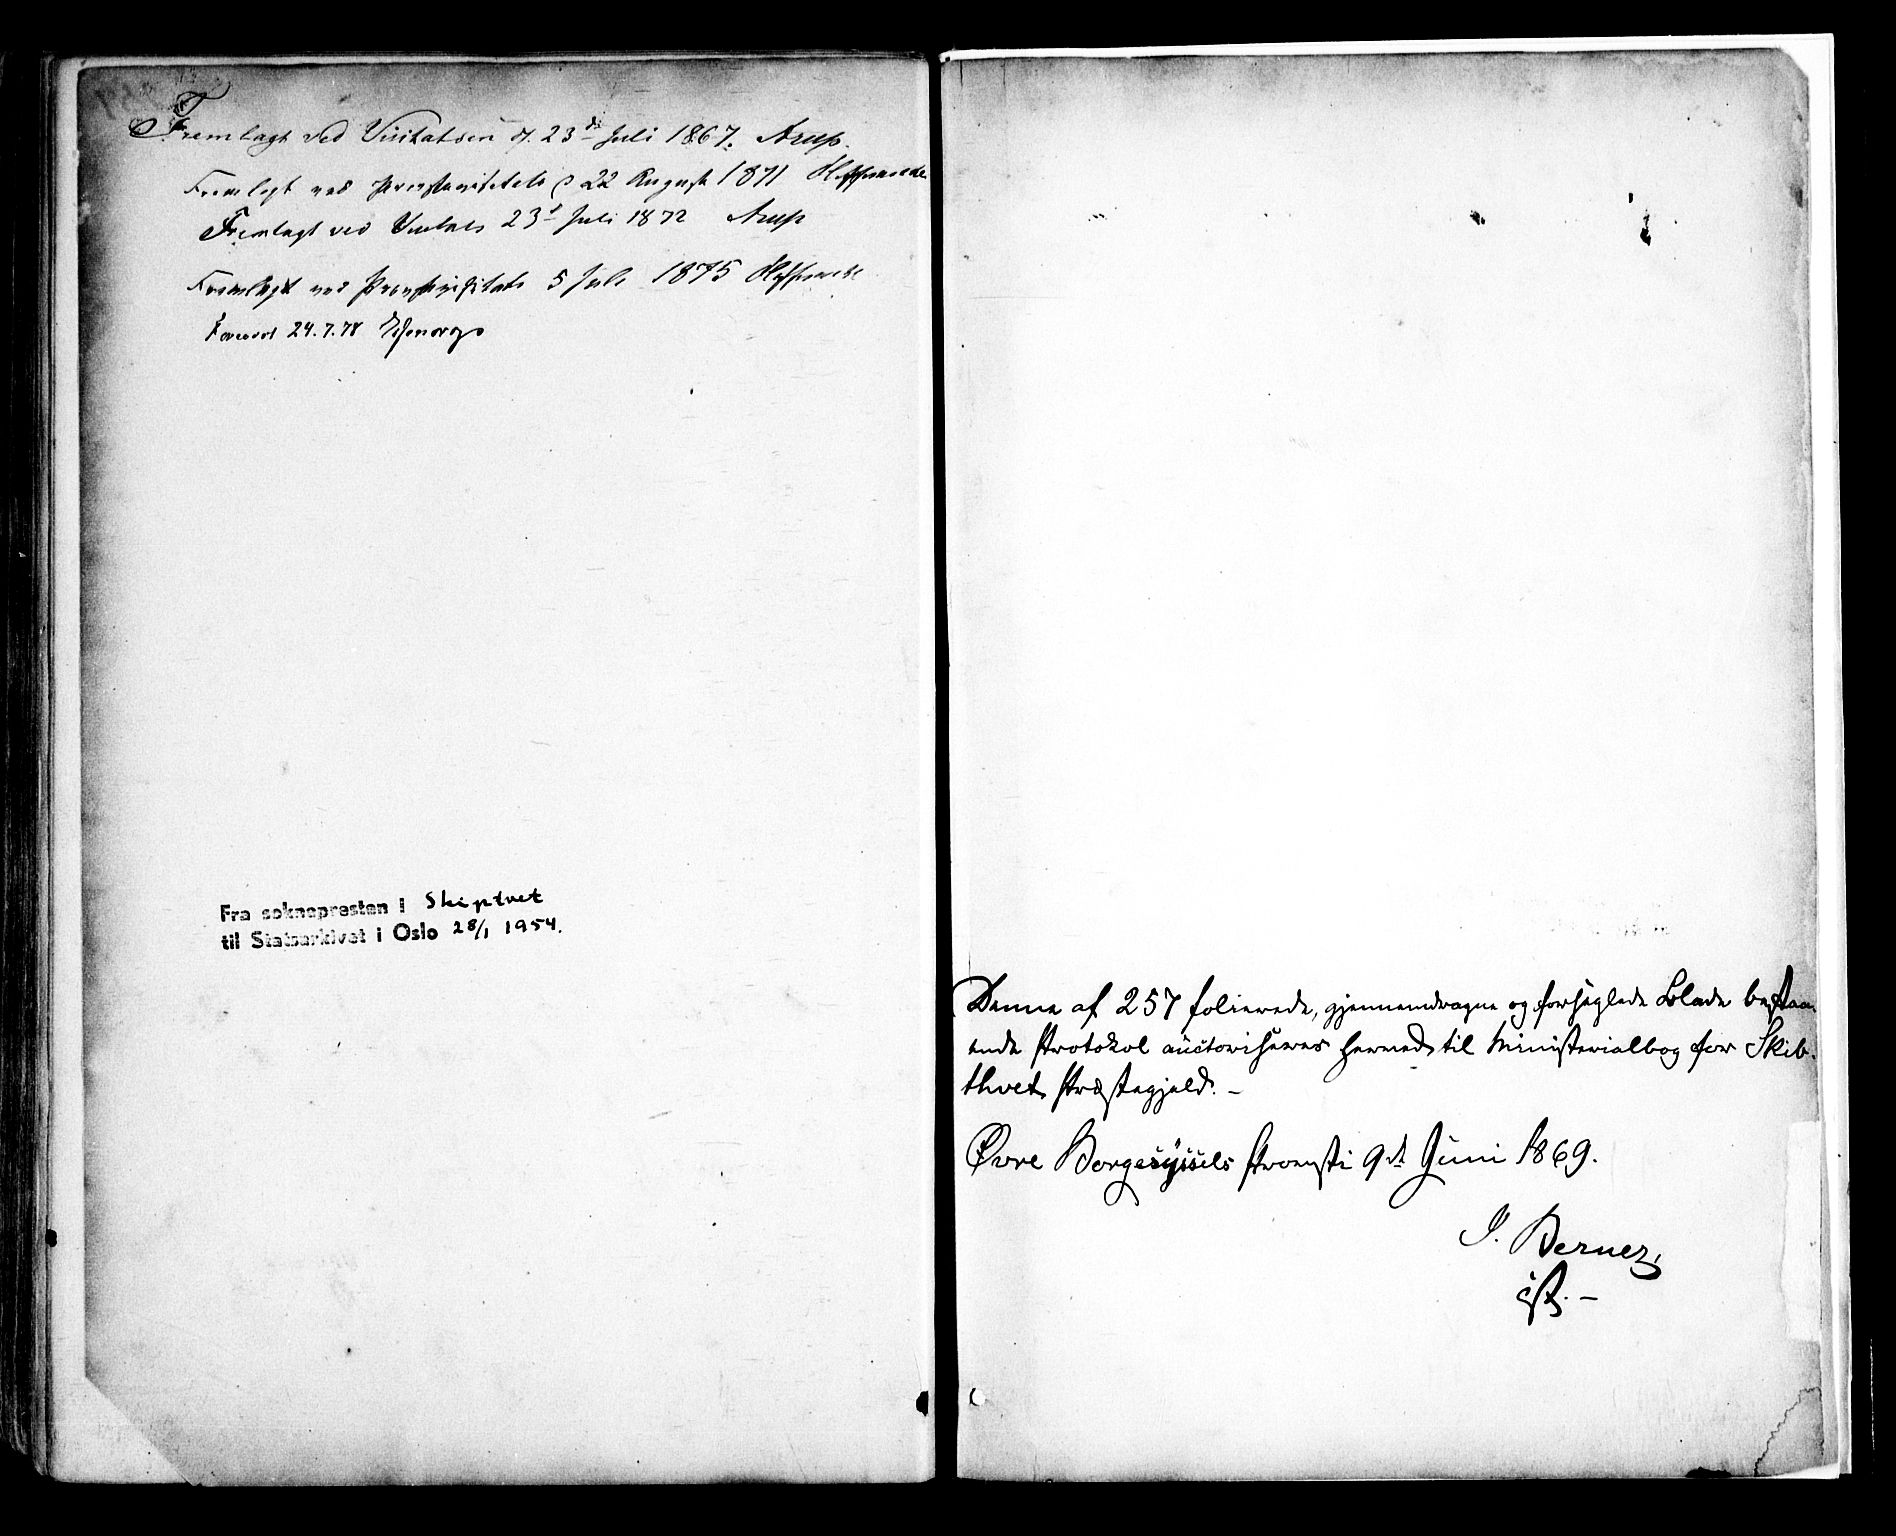 Fremlagt ved Visitatsen d. 23de Juli 1867. Arup.
Fremlagt ved Provstevisitats d 22 August 1871
Fremlagt ved Visitats 23d Juli 1872 Arup
Fremlagt ved Provstevisitats 5 Juli 1875
Forevist 24.7.78
Fra soknepresten i Skiptvet
til Statsarkivet i Oslo 28/1 1954.
Denne af 257 folierede, gjennemdragne og forseglede Blade bestaa-
ende Protokol auctoriseres herved til Ministerialbog for Skib-
thvet Præstegjeld. –
Øvre Borgesyssels Provsti 9de Juni 1869.
J. Berner,
cst. –